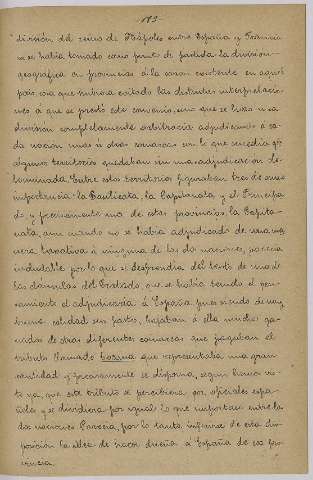 183
división del reino de Nápoles entre España y Francia
no se había tomado como punto de partida la división
geográfica en provincias á la sazón existente en aquel
país, cosa que hubiera evitado las distintas interpretacio-
nes á que se prestó este convenio, sino que se hizo una
división completamente arbitraria adjudicando á ca-
da nación unas ú otras comarcas con lo que sucedía qe
algunos territorios quedaban sin una adjudicación de-
terminada. Entre estos territorios figuraban tres de suma
importancia: la Basilicata, la Capitanata y el Principa
do y precisamente una de estas provincias, la Capita-
nata, aun cuando no se había adjudicado de una ma
nera taxativa á ninguna de las dos naciones, parecía
indudable por lo que se desprendía del texto de una de
las cláusulas del Tratado, que se había tenido el pen-
samiento de adjudicarla á España pues siendo de muy
buena calidad sus pastos, bajaban á ella muchos ga-
nados de otras diferentes comarcas que pagaban el
tributo llamado que representaba una gran
cantidad y precisamente se disponía, según hemos vis-
to ya, que este tributo se percibiera por oficiales espa-
ñoles y se dividiera por igual lo que importara entre las
dos naciones. Parecía, por lo tanto, inferirse de esta dis-
posición la idea de hacer dueña á España de esa pro
vincia.